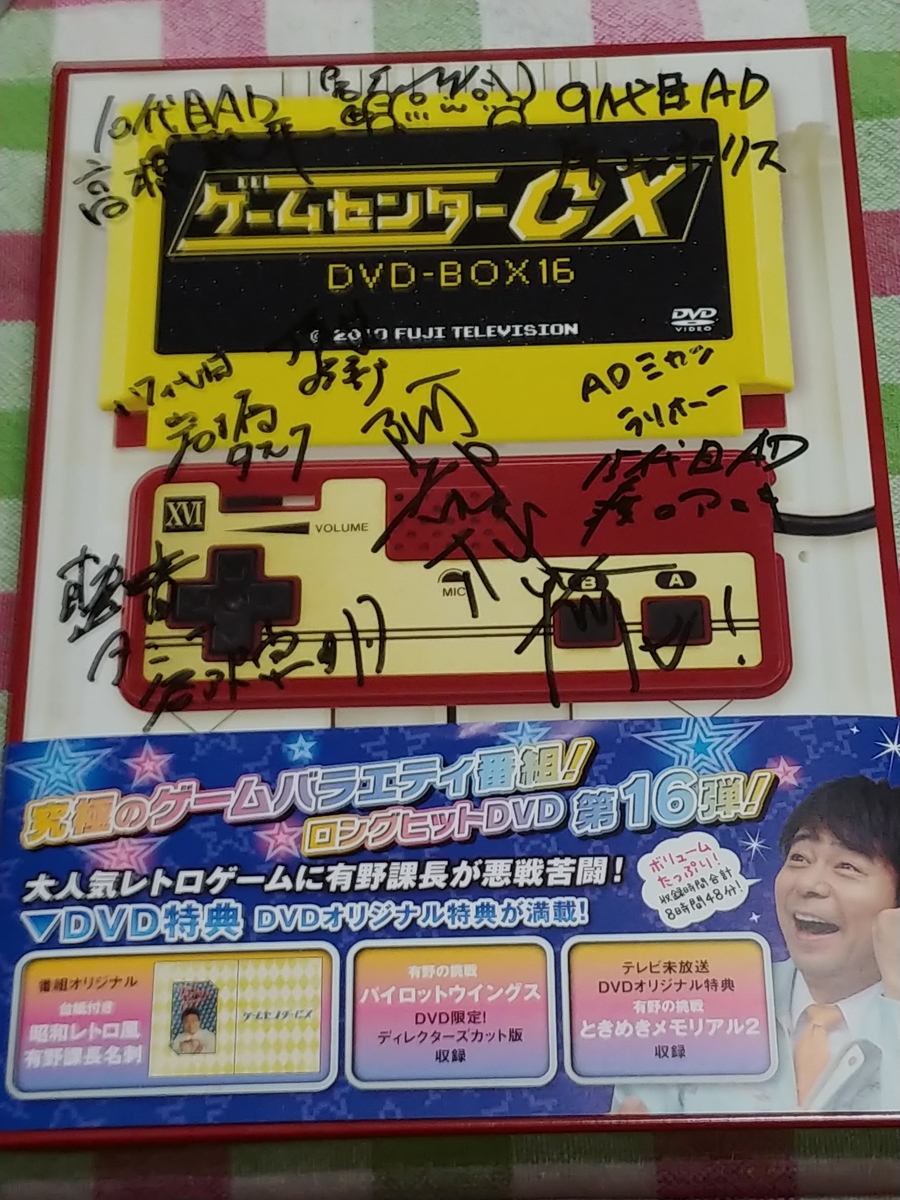 10代目AD
高橋
9代目AD
ゲームセンターCX
DVD-BOX16
© 2019 FUJI TELEVISION
DVD
VIDEO
17代目
ADミカツ
15代目AD
XVI
VOLUME
MIC
B
A
究極のゲームバラエティ番組!
ロングヒットDVD 第16弾!
大人気レトロゲームに有野課長が悪戦苦闘!
▼DVD特典 DVDオリジナル特典が満載!
ボリューム
たっぷり!
収録時間合計
8時間48分!
番組オリジナル
台紙付き
昭和レトロ風
有野課長名刺
ゲームセンターCX
有野の挑戦
パイロットウイングス
DVD限定!
ディレクターズカット版
収録
テレビ未放送
DVDオリジナル特典
有野の挑戦
ときめきメモリアル2
収録